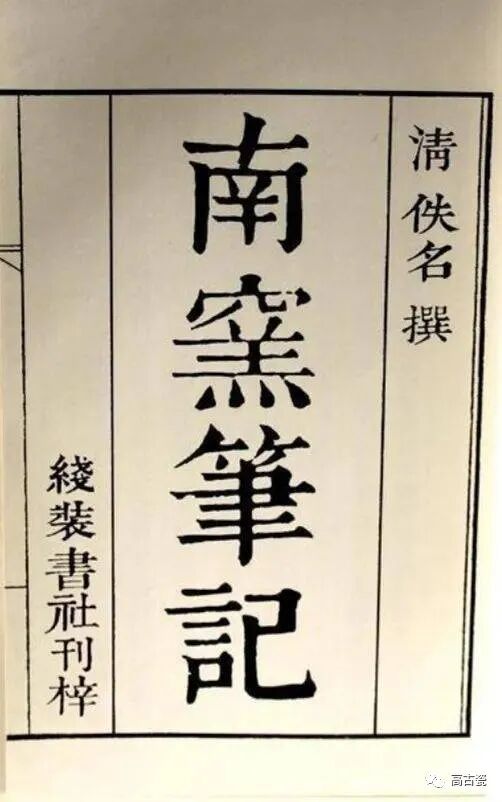 清佚名撰
南窯筆記
綫装書社刊梓
高古瓷